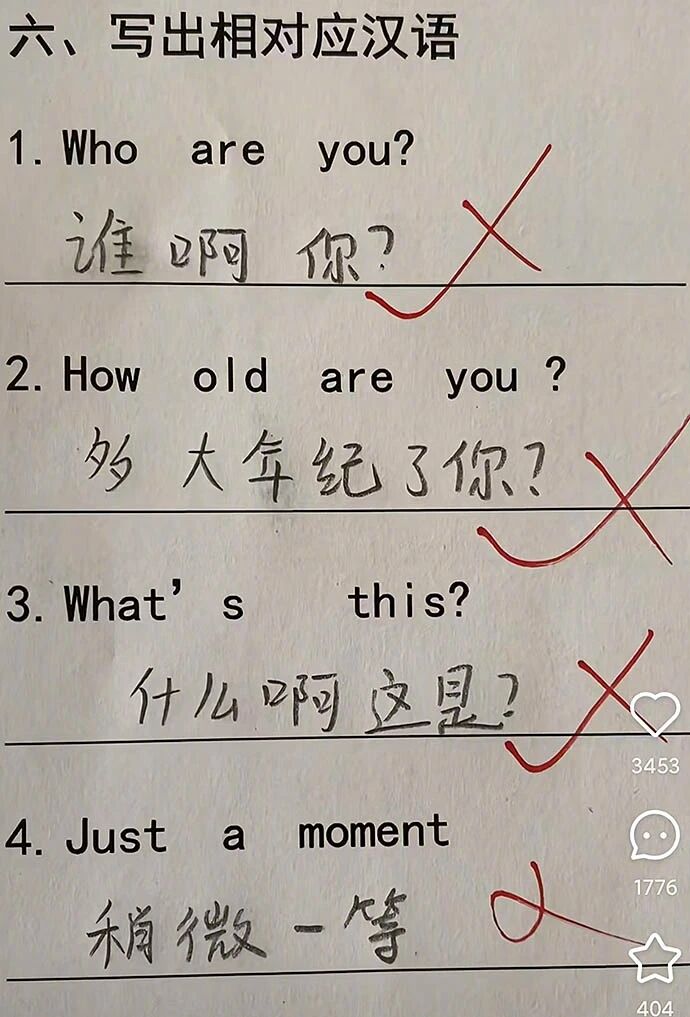 六、写出相对应汉语
1. Who are you?
谁啊你?
2. How old are you ?
多大年纪了你?
3. What's this?
什么啊这是?
3453
4. Just a moment
1776
稍微一等
404